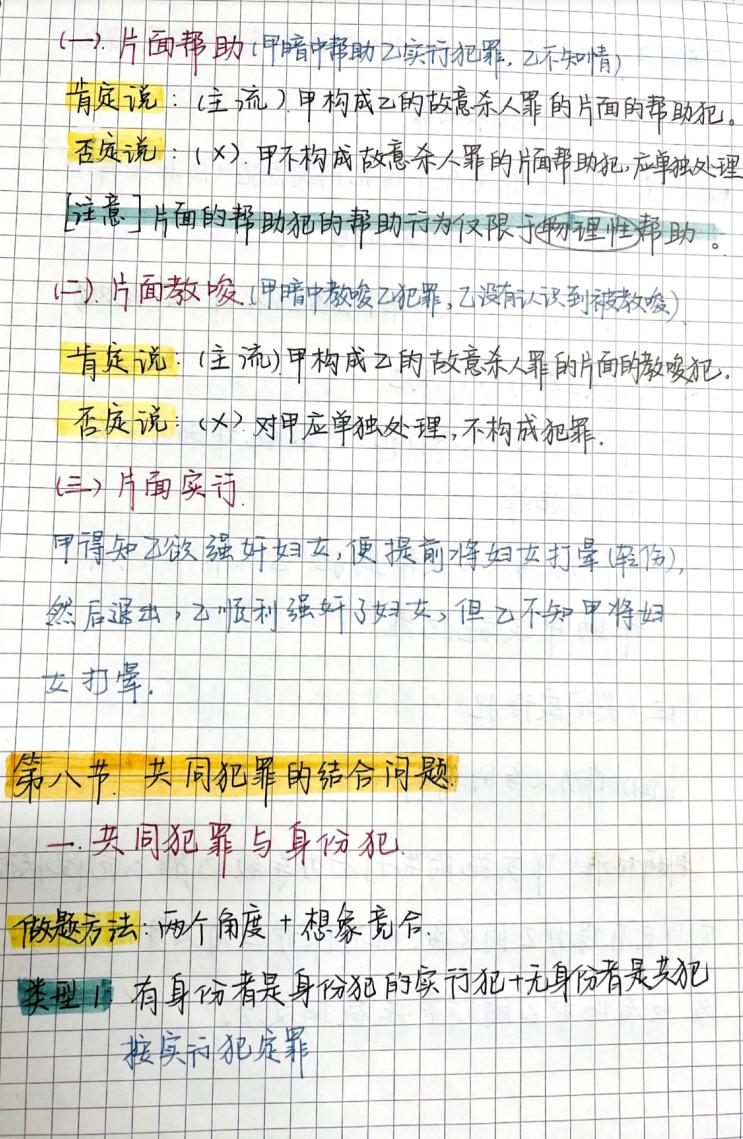 (一). 片面帮助(甲暗中帮助乙实行犯罪，乙不知情)
肯定说：(主流) 甲构成乙的故意杀人罪的片面的帮助犯。
否定说：(×). 甲不构成故意杀人罪的片面帮助犯,应单独处理
[注意] 片面的帮助犯的帮助行为仅限于物理性帮助。
(二). 片面教唆(甲暗中教唆乙犯罪,乙没有认识到被教唆)
肯定说：(主流)甲构成乙的故意杀人罪的片面的教唆犯.
否定说：(×). 对甲应单独处理,不构成犯罪.
(三) 片面实行.
甲得知乙欲强奸妇女,便提前将妇女打晕(轻伤),
然后退出,乙顺利强奸了妇女,但乙不知甲将妇
女打晕.
第八节. 共同犯罪的结合问题.
一. 共同犯罪与身份犯.
做题方法: 两个角度+想象竞合.
类型1: 有身份者是身份犯的实行犯+无身份者是共犯
按实行犯定罪